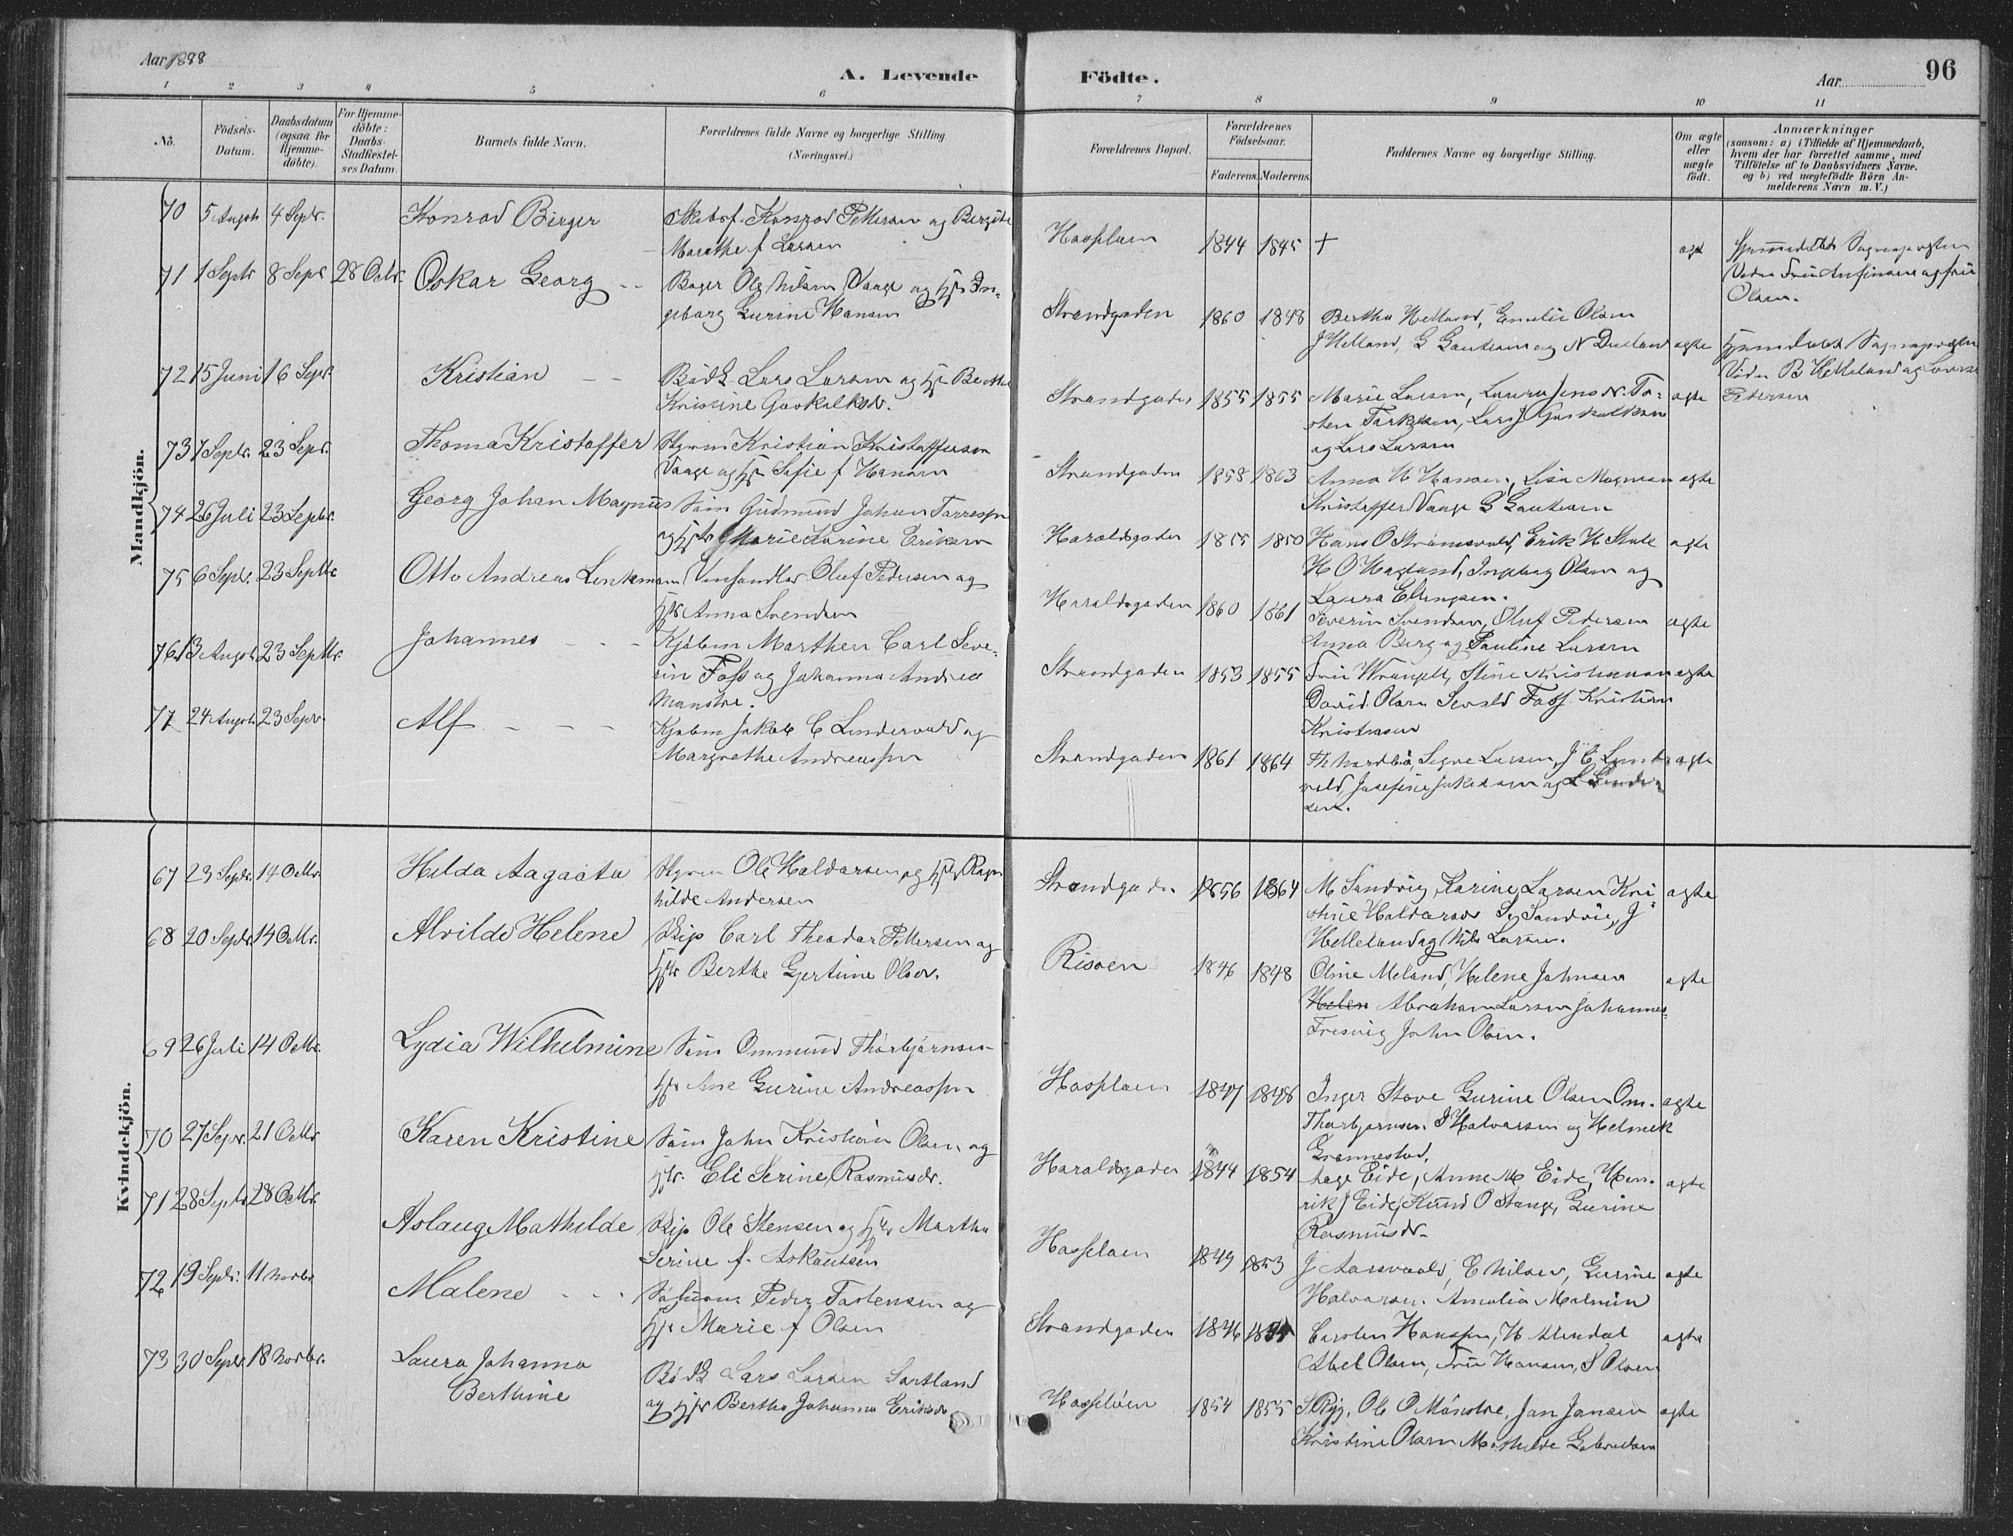 Aar 1888
A. Levende
Födte.
Aar
96
1 2 3 4 5 6 7 8 9 10 11
No.
Födsels-
Datum.
Daabsdatum
(ogsaa for
Hjemme-
döbte).
For Hjemme-
döbte:
Daabs-
Stadfæstel-
ses Datum.
Barnets fulde Navn.
Forældrenes fulde Navne og borgerlige Stilling.
(Næringsvei.)
Forældrenes Bopæl.
Forældrenes
Födselsaar.
Faderens. Moderens.
Faddernes Navne og borgerlige Stilling.
Om ægte
eller
uægte
födt.
Anmærkninger
(saasom: a) i Tilfælde af Hjemmedaab,
hvem der har forrettet samme, med
Tilföielse af to Daabsvidners Navne.
og b) ved uægtefödte Börn An-
melderens Navn m. V.)
Mandkjön.
70 5 August 4 Septr. Konrad Birger Konrad Pettersen og Bergitte
Marthe f Larsen
Hasseløen 1844 1845 + agt
Olsen.
71 1 Septr 8 Septr 28 Octr. Oskar Georg Bager Ole Nilsen Vaage og Hstr In-
geborg Gurine Hansen
Strandgaden 1860 1848 Bertha Helland, Emelie Olsen
J Helland, G Gautesen og N Dueland agte
72 15 Juni 16 Septr Kristian Bødk Lars Larsen og Hstr Berthe
Kristine Gaskalksdr.
Strandgaden 1855 1855 Marie Larsen, Laura Jensdr. To- agte
sten Torkelsen, Lars J Gaskalksen
og Lars Larsen
Petersen
73 7 Septr. 23 Septr. Thoma Kristoffer Styrm Kristian Kristoffersen
Vaage og Hstr Sofie f Hansen
Strandgaden 1858 1863 Anna H Hansen, Lisa Magnesen agte
Kristoffer Vaage G Gautesen
74 26 Juli 23 Septr. Georg Johan Magnus Søm Gudmund Johan Torresen
og Hstr Marie Karine Eriksen
Haraldsgaden 1855 1850 Hans O Strømsvold, Erik H Stole agte
H O Hagland, Ingeborg Olsen og
Laura Ellingsen.
75 6 Septr. 23 Septbr Otto Andreas Lentzmann Vinhandler Oluf Pedersen og
Hstr Anna Svendsen
Haraldsgaden 1860 1861 Severin Svendsen, Oluf Pedersen agte
Anna Berg og Pauline Larsen
76 13 August. 23 Septbr. Johannes Kjøbm Marthen Carl Seve-
rin Foss og Johanna Andrea
Monstre.
Strandgaden 1853 1855 Fru Wrangell, Stine Kristiansen agte
David Olsen Sevald Foss Kristian
Kristensen
77 24 August. 23 Septr. Alf Kjøbm Jakob C Lindervold og
Margrethe Andreassen
Strandgaden 1861 1864 Th Nordbø, Signe Larsen, J C Lind agte
vold, Josefine Jakobsen og
sen.
Kvindekjön.
67 23 Septr. 14 Octbr. Hilda Aagaata Styrm Ole Haldorsen og Hstr Ragn
hilde Andersen
Strandgaden 1856 1864 M Sandvig, Karine Larsen Kri- agte
stine Haldorsdr S Sandvig, J
Helleland og Nils Larsen.
68 20 Septr. 14 Octbr. Alvilde Helene Skip Carl Theodor Pettersen og
Hstr Berthe Gjertine Olsdr.
Risøen 1846 1848 Oline Meland, Helene Johnsen agte
Helen Abraham Larsen Johannes
Fresvig John Olsen.
69 26 Juli 14 Octbr. Lydia Wilhelmine Søm Ommund Thorbjørnsen
Hstr Ane Gurine Andreassen
Hasseløen 1847 1848 Inger Stave Gurine Olsen Om. agte
Thorbjørnsen I Halvorsen og Helmik
Grønnestad.
70 27 Septr. 21 Octbr Karen Kristine Søm John Kristian Olsen og
Hstr. Eli Serine Rasmusdr.
Haraldsgaden 1844 1854 Aage Eide, Anne M Eide, Hen- agte
rik J Eide, Knud O Stange, Gurine
Rasmusdr
71 28 Septr. 28 Octbr. Aslaug Mathilde Skip Ole Stensen og Hstr Martha
Serine f. Askautsen
Hasseløen 1849 1853 J Aarsvold, E Nilsen, Gurine agte
Halvorsen. Amalia Malmin
72 19 Septr. 11 Novbr. Malene Peder Tostensen og
Hstr Marie f Olsen
Strandgaden 1846 Carsten Hansen, H Alendal agte
Abel Olsen, Fru Hansen, S Olsen
73 30 Septr. 18 Novbr. Laura Johanna
Berthine
Bødk Lars Larsen Sortland
og Hstr Bertha Johanna Eriksdr
Hasseløen 1854 1855 S Rÿg, Ole O Mønstre, Jan Jansen agte
Kristine Olsen Mathilde Gabrielsen